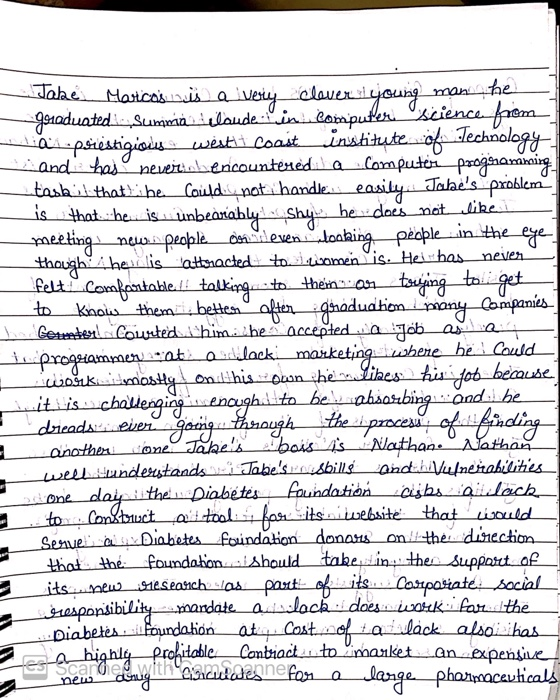 Jake Marcos is a very clever young man he
graduated summa claude in computer science from
a prestigious west coast institute of Technology
and has never encountered a Computer programming
task that he Could not handle easily Jake's problem
is that he is unbearably shy he does not like
meeting new people or even looking people in the eye
though he is attracted to women is. He has never
felt Comfortable talking to them or trying to get
to know them better after graduation many Companies
Courted him he accepted a Job as a
programmer at a lack marketing where he Could
work mostly on his own he likes his job because
it is challenging enough to be absorbing and he
dreads ever going through the process of finding
another one Jake's boss is Nathan. Nathan
well understands Jake's skills and Vulnerabilities
one day the Diabetes foundation asks a lack
to Construct a tool for its website that would
Serve a Diabetes foundation donors on the direction
that the foundation should take in the support of
its new research as part of its Corporate social
responsibility mandate a lack does work for the
Diabetes foundation at Cost of a lack also has
a highly profitable Contract to market an expensive
new drug Circulates for a large pharmaceuticals
CS Scanned with CamScanner